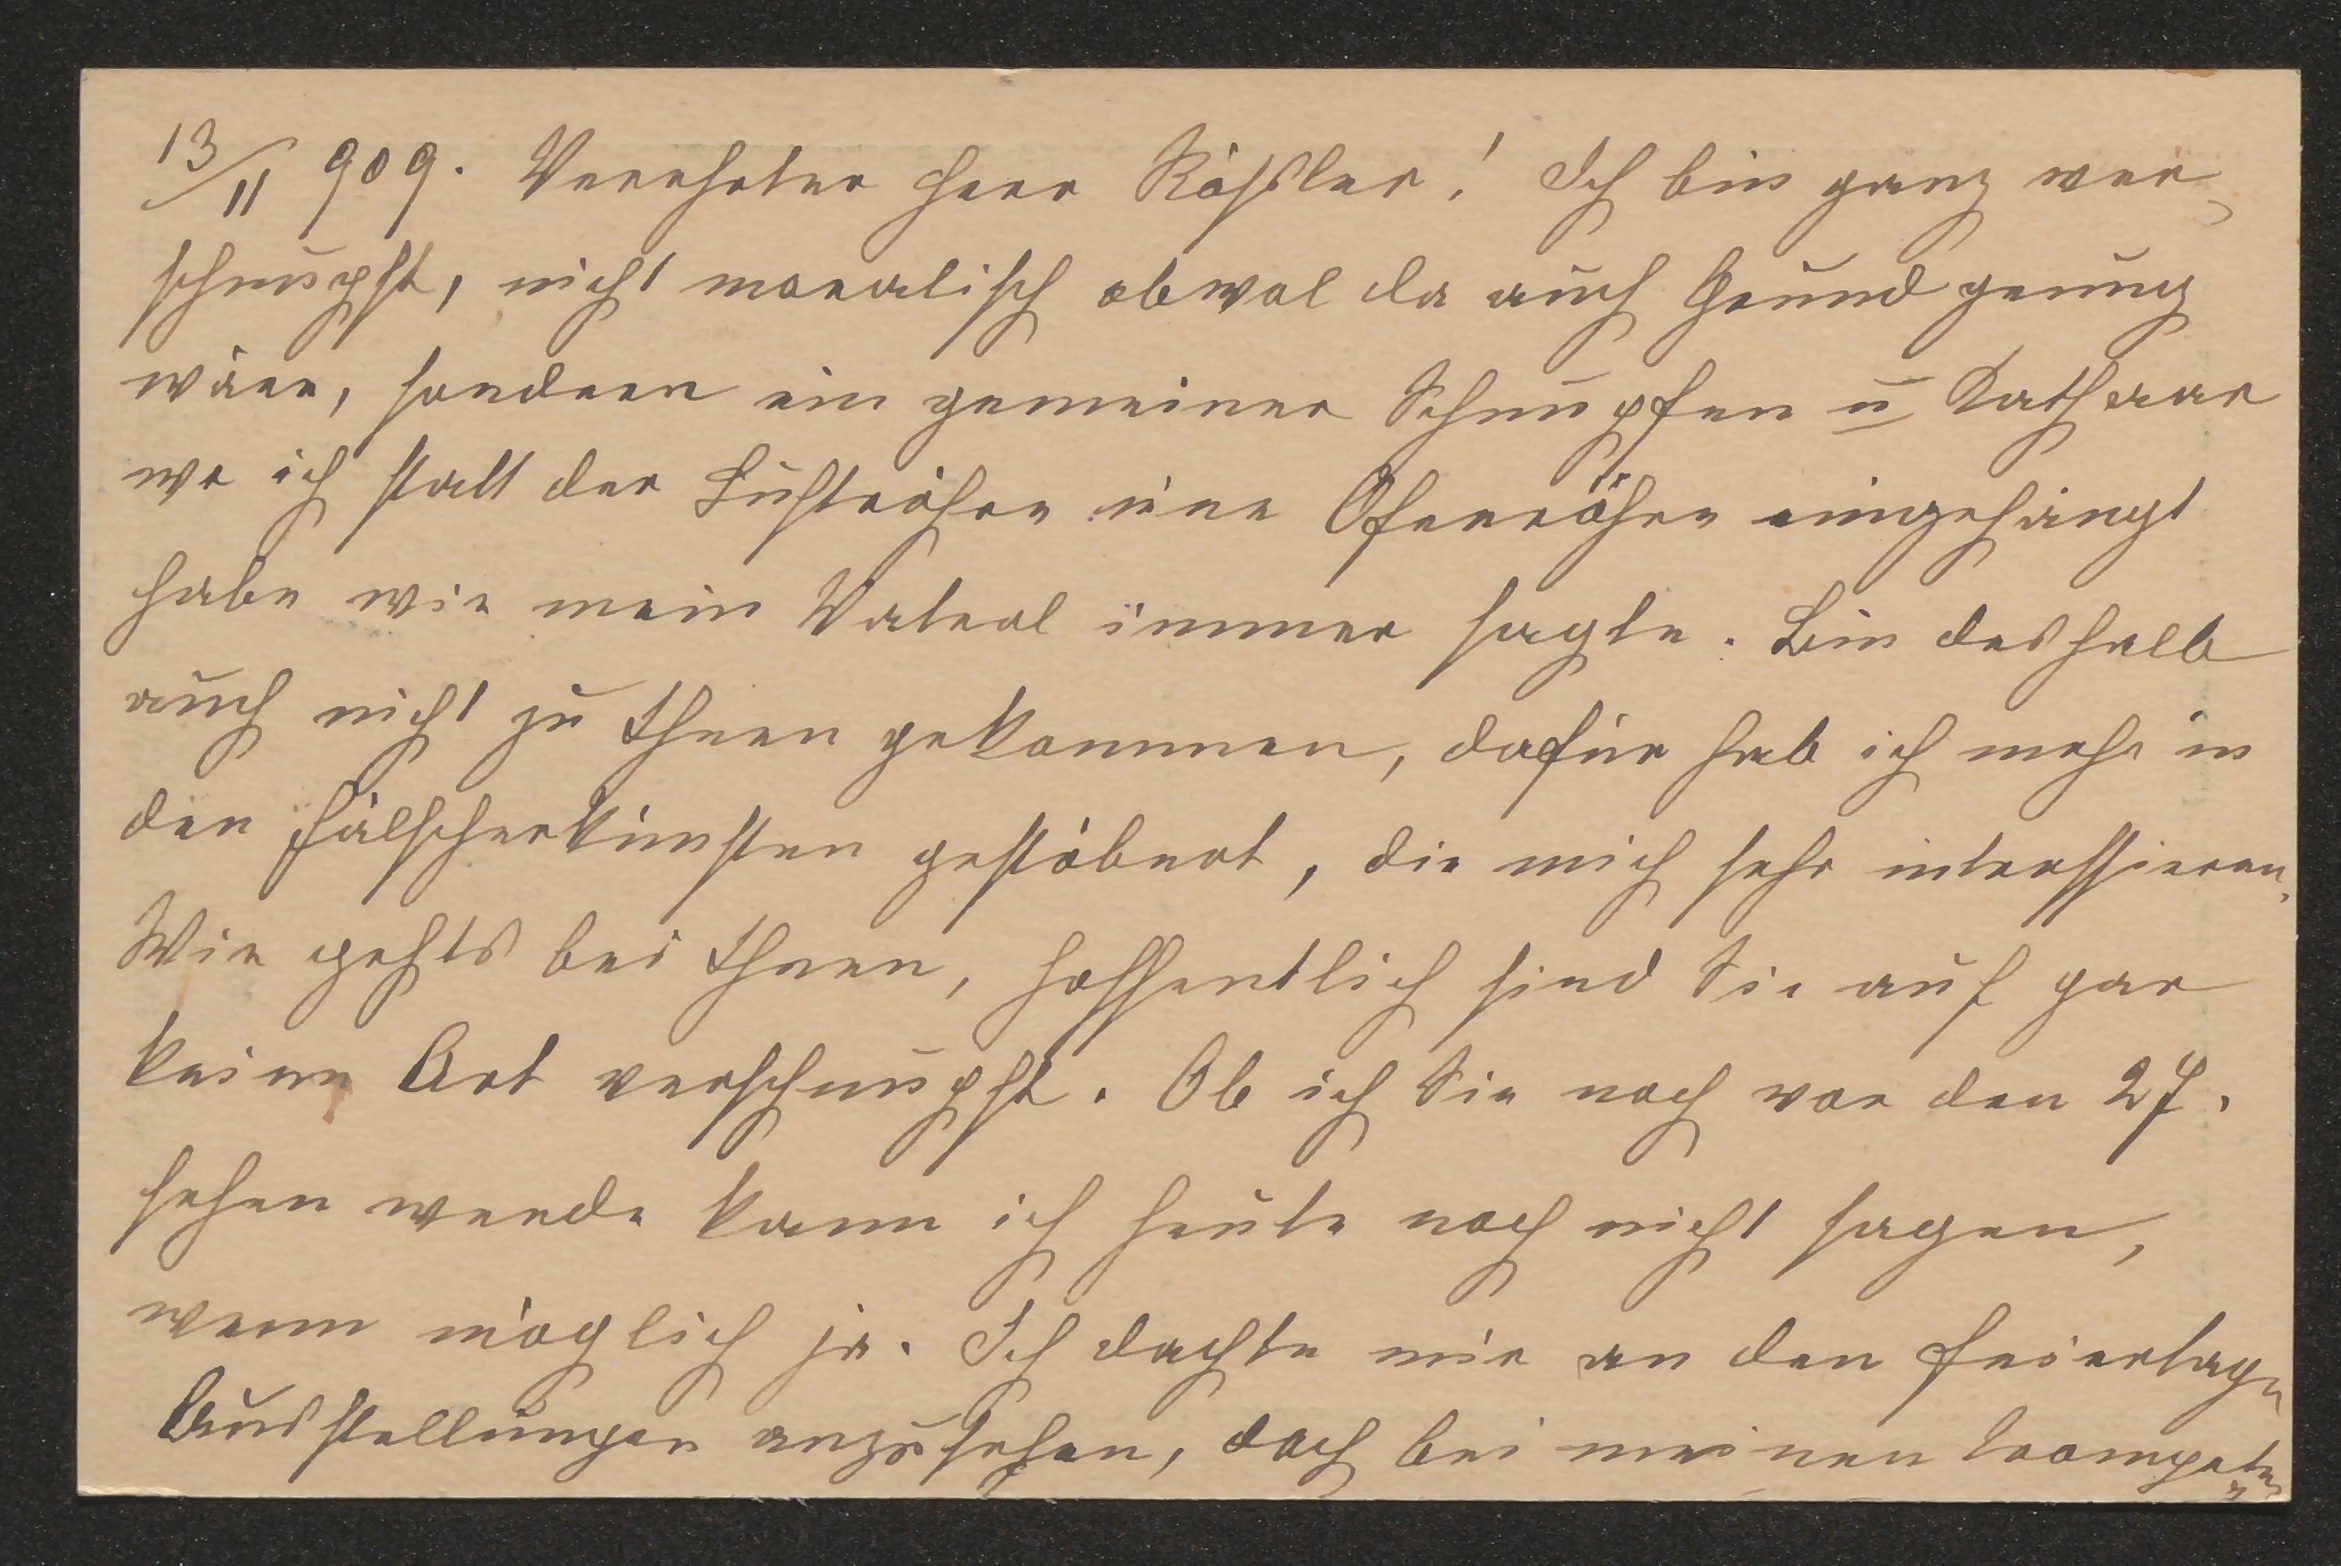 13/11 909. Verehrter Herr Rößler! Ich bin ganz ver-
schnupft, nicht moralisch obwol da auch Grund genug
wäre, sondern ein gemeiner Schnupfen u Katharr
wo ich statt der Luftröhre eine Ofenröhre eingehängt
habe wie mein Vaterl immer sagte. Bin deshalb
auch nicht zu Ihnen gekommen, dafür hab ich mehr in
den Fälscherkünsten gestöbert, die mich sehr interssieren.
Wie gehts bei Ihnen, hoffentlich sind Sie auf gar
keine Art verschnupft. Ob ich Sie noch vor den 27.
sehen werde kann ich heute noch nicht sagen,
wenn möglich ja. Ich dachte mir an den Feiertagen
Ausstellungen anzusehen, doch bei meinen trompeten-